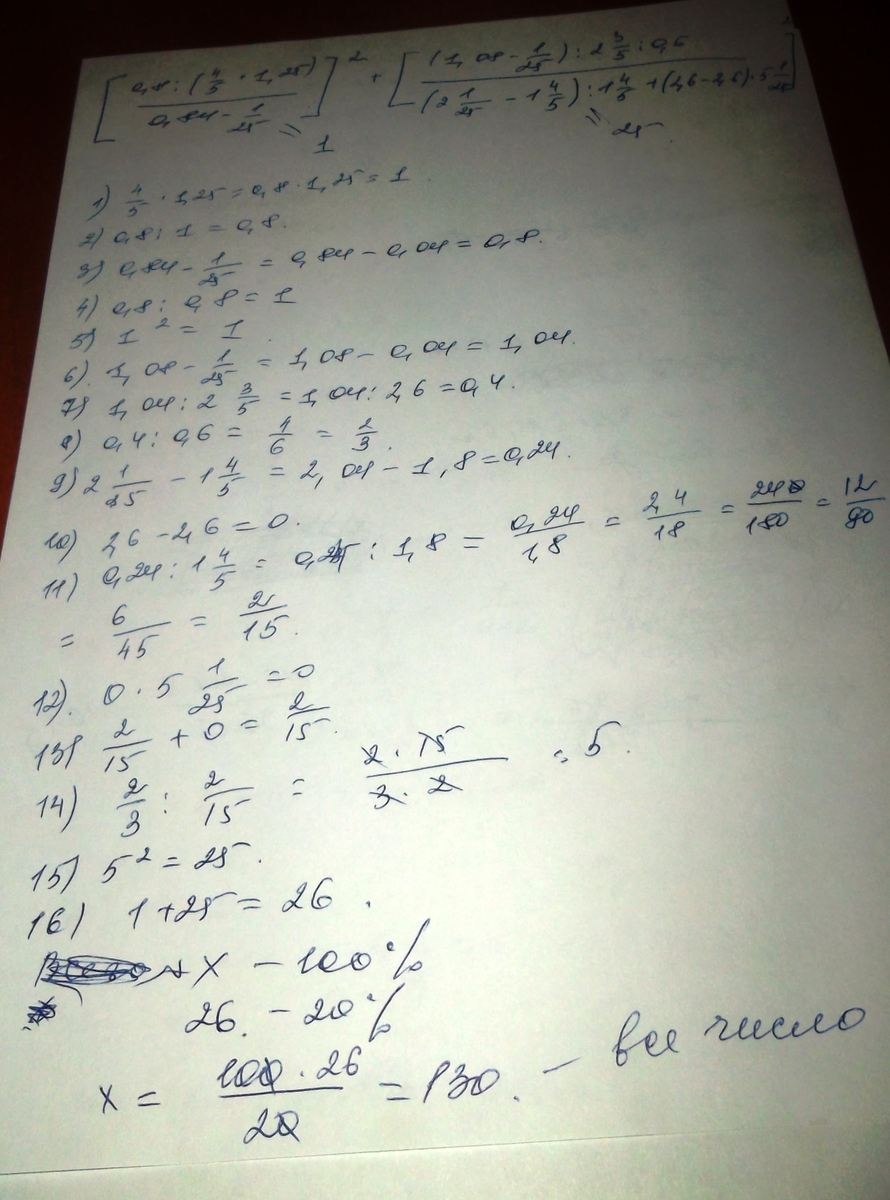 [ (0,8 : (4/5 · 1,25)) / (0,84 - 1/25) ]² + [ ((1,08 - 1/25) : 2 3/5 : 0,6) / ((2 1/25 - 1 4/5) : 1 4/5 + (2,6 - 2,6) · 5 1/25) ]²
= 1 = 25
1) 4/5 · 1,25 = 0,8 · 1,25 = 1.
2) 0,8 : 1 = 0,8.
3) 0,84 - 1/25 = 0,84 - 0,04 = 0,8.
4) 0,8 : 0,8 = 1
5) 1² = 1.
6) 1,08 - 1/25 = 1,08 - 0,04 = 1,04.
7) 1,04 : 2 3/5 = 1,04 : 2,6 = 0,4.
8) 0,4 : 0,6 = 4/6 = 2/3.
9) 2 1/25 - 1 4/5 = 2,04 - 1,8 = 0,24.
10) 2,6 - 2,6 = 0.
11) 0,24 : 1 4/5 = 0,24 : 1,8 = 0,24/1,8 = 2,4/18 = 24/180 = 12/90
= 6/45 = 2/15.
12). 0 · 5 1/25 = 0
13) 2/15 + 0 = 2/15.
14) 2/3 : 2/15 = 2 · 15 / 3 · 2 = 5.
15) 5² = 25.
16) 1 + 25 = 26.
x - 100%
26. - 20%
x = 100 · 26 / 20 = 130. - все число